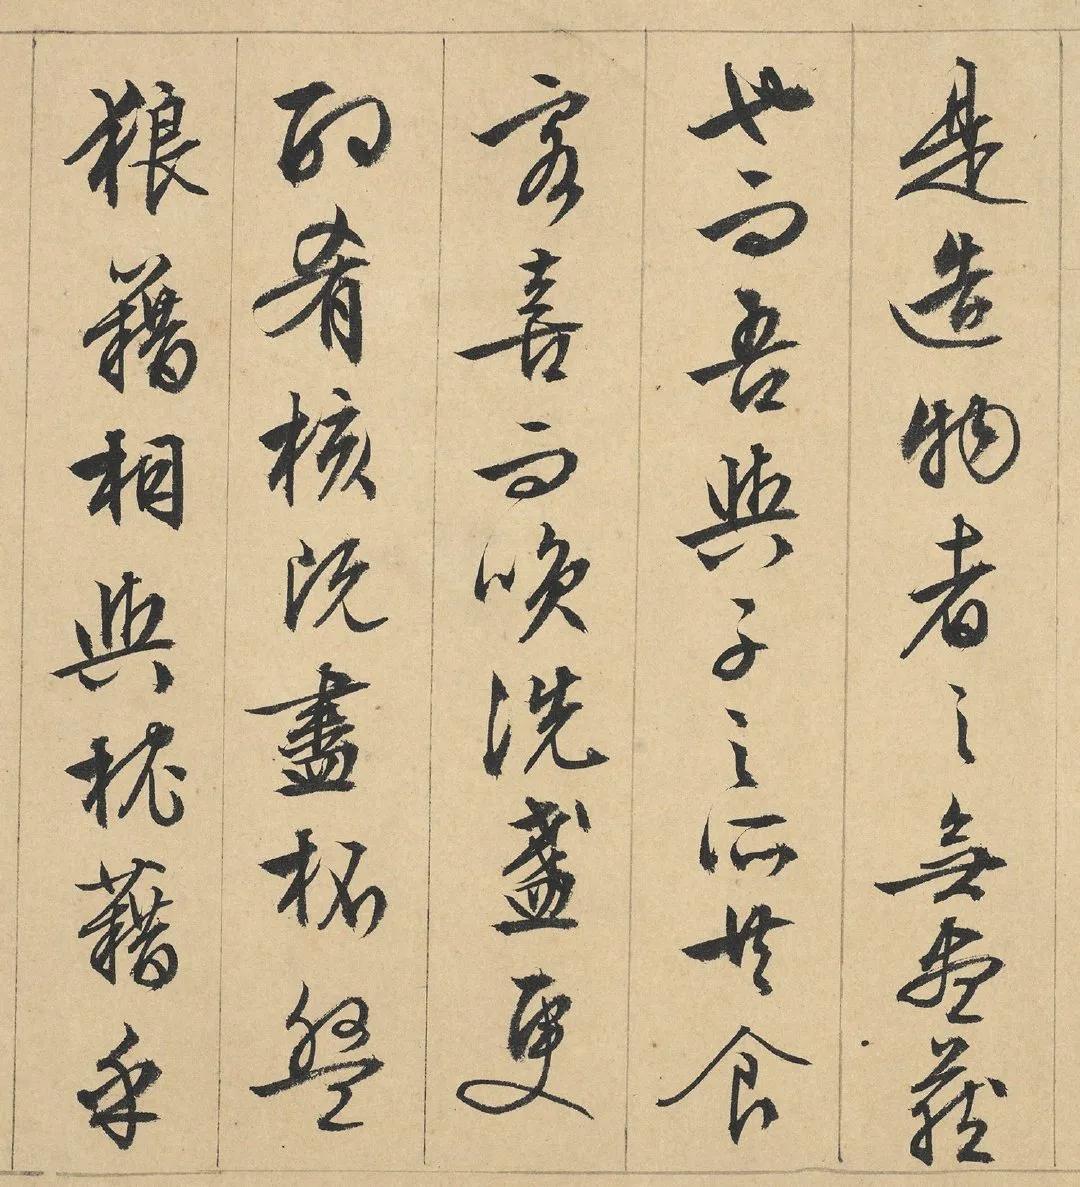 是造物者之無盡藏
也而吾與子之所共食
客喜而喚洗盞更
酌肴核既盡杯盤
狼藉相與枕藉乎